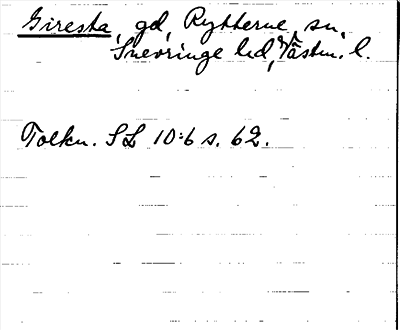 Giresta, gd, Rytterne sn,
Snevringe hd, Västm. l.
Tolkn. SL 10:6 s. 62.